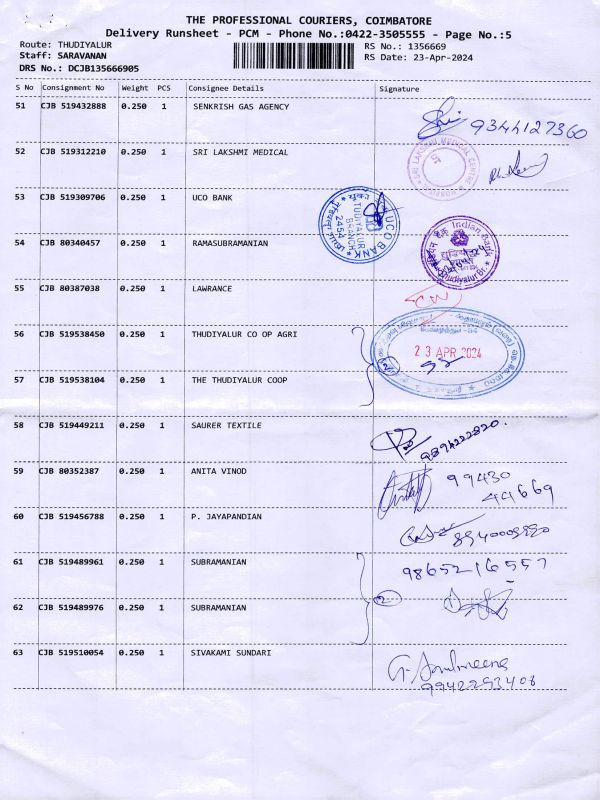 THE PROFESSIONAL COURIERS, COIMBATORE
Delivery Runsheet - PCM - Phone No.:0422-3505555 - Page No.:5
Route: THUDIYALUR
RS No.: 1356669
Staff: SARAVANAN
RS Date: 23-Apr-2024
DRS No.: DCJB135666905
S No Consignment No Weight PCS Consignee Details Signature
51 CJB 519432888 0.250 1 SENKRISH GAS AGENCY
9344127360
52 CJB 519312210 0.250 1 SRI LAKSHMI MEDICAL
SRI LAKSHMI MEDICAL CENTRE
53 CJB 519309706 0.250 1 UCO BANK
UCO BANK
TUDIYALUR
BRANCH
2454
54 CJB 80340457 0.250 1 RAMASUBRAMANIAN
Indian Bank
Thudiyalur Br.
55 CJB 80387038 0.250 1 LAWRANCE
56 CJB 519538450 0.250 1 THUDIYALUR CO OP AGRI
23 APR 2024
2
57 CJB 519538104 0.250 1 THE THUDIYALUR COOP
58 CJB 519449211 0.250 1 SAURER TEXTILE
9894222820.
59 CJB 80352387 0.250 1 ANITA VINOD
99430
44669
60 CJB 519456788 0.250 1 P. JAYAPANDIAN
61 CJB 519489961 0.250 1 SUBRAMANIAN
9865216557
2
62 CJB 519489976 0.250 1 SUBRAMANIAN
63 CJB 519510054 0.250 1 SIVAKAMI SUNDARI
9942293408